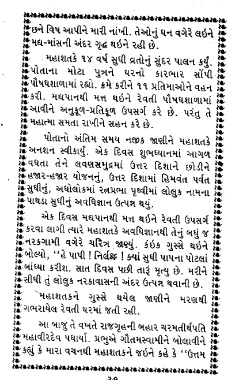 છને વિષ આપીને મારી નાંખી. તેઓનું ધન વગેરે લઇને
મદ્ય-માંસની અંદર ગૃદ્ધ થઇને રહી છે.
મહાશતકે ૧૪ વર્ષ સુધી વ્રતોનું સુંદર પાલન કર્યું.
પોતાના મોટા પુત્રને ઘરનો કારભાર સોંપી
પૌષધશાળામાં રહ્યો. ક્રમે કરીને ૧૧ પ્રતિમાઓને વહન
કરી. મદ્યપાનથી મત્ત થઇને રેવતી પૌષધશાળામાં
આવીને અનુકૂળ-પ્રતિકૂળ ઉપસર્ગ કરે છે. પરંતુ તે
મહાત્મા સમતા રાખીને સહન કરે છે.
પોતાનો અંતિમ સમય નજીક જાણીને મહાશતકે
અનશન સ્વીકાર્યું. એક દિવસ શુભધ્યાનમાં આગળ
વધતા તેને લવણસમુદ્રમાં ઉત્તર દિશાને છોડીને
હજાર-હજાર યોજનનું, ઉત્તર દિશામાં હિમવંત પર્વત
સુધીનું, અધોલોકમાં રત્નપ્રભા પૃથ્વીમાં લોલુક નામના
પાથડા સુધીનું અવધિજ્ઞાન ઉત્પન્ન થયું.
એક દિવસ મદ્યપાનથી મત્ત થઇને રેવતી ઉપસર્ગ
કરવા લાગી ત્યારે મહાશતકે અવધિજ્ઞાનથી તેનું બધું જ
નરકગામી વગેરે ચરિત્ર જાણ્યું. કંઇક ગુસ્સે થઇને
બોલ્યો, "હે પાપી ! નિર્લજ્જ ! ક્યાં સુધી પાપના પોટલાં
બાંધ્યા કરીશ. સાત દિવસ પછી તારૂં મૃત્યુ છે. મરીને
સીધી તું લોલુક નરકાવાસની અંદર ઉત્પન્ન થવાની છે.
મહાશતકને ગુસ્સે થયેલ જાણીને મરણથી
ગભરાયેલ રેવતી ઘરમાં જતી રહી.
આ બાજુ તે વખતે રાજગૃહની બહાર ચરમતીર્થપતિ
મહાવીરદેવ પધાર્યા. પ્રભુએ ગૌતમસ્વામીને બોલાવીને
કહ્યું કે મારા વચનથી મહાશતકને જઇને કહે કે "ઉત્તમ